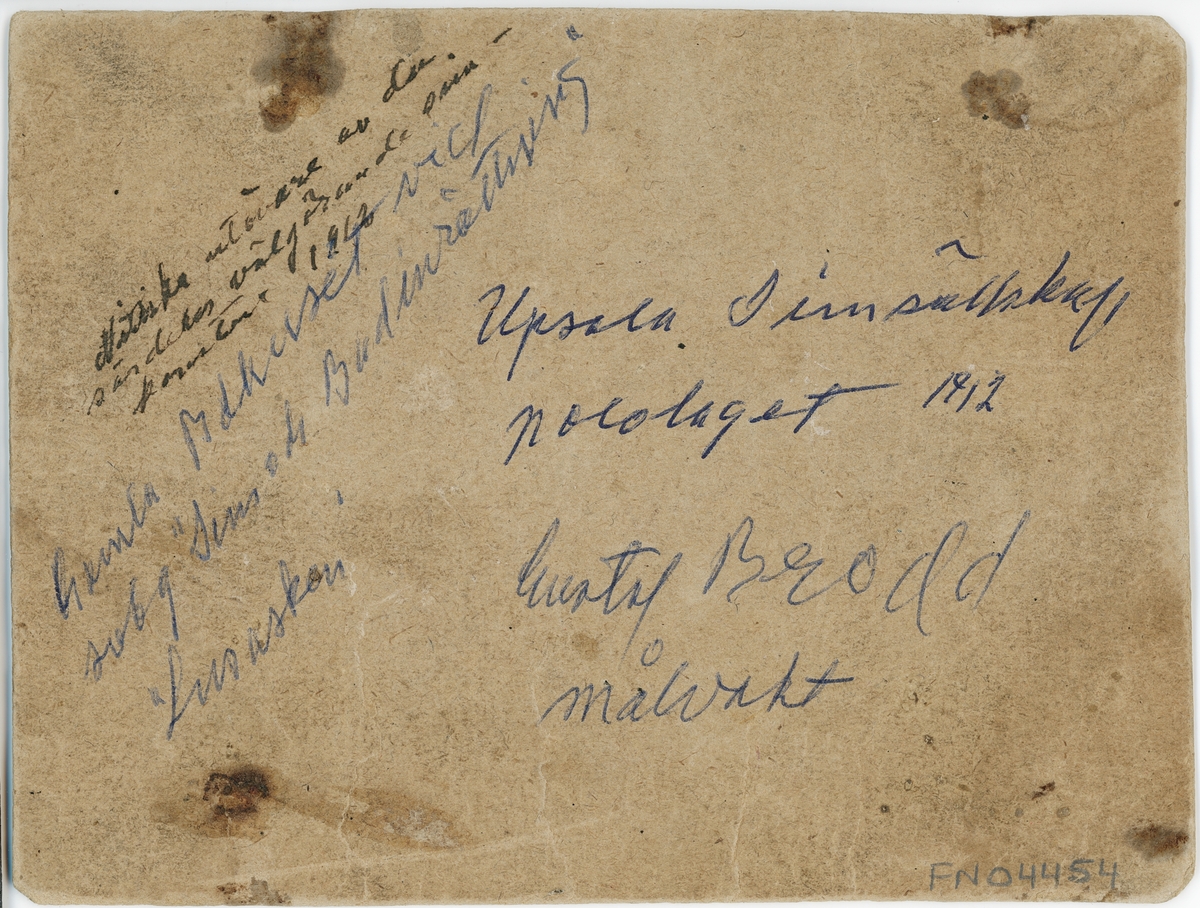 Nitiska utövare av den
särdeles välgörande sim-
konsten. 1912
Gamla Badhuset vid
sobg "Sim och Badinrättning"
"Lusasken"
Upsala Simsällskap
pololaget 1912
Gustaf Brodd
målvakt
FN04454